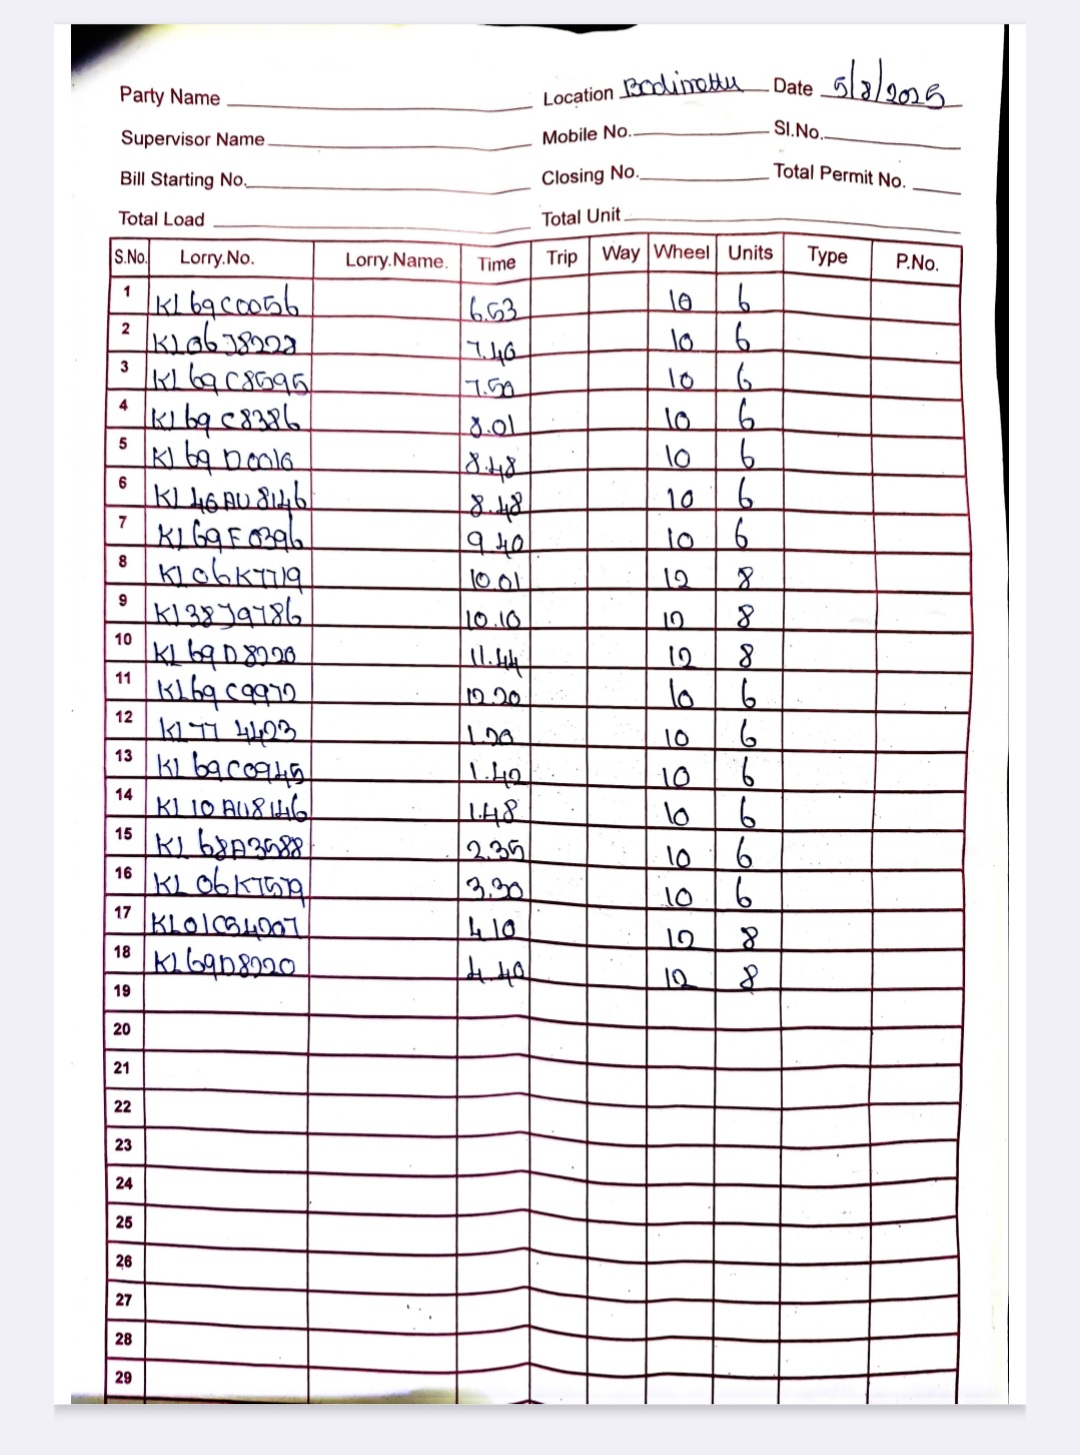 Party Name Location Bodimettu Date 5/8/2025
Supervisor Name Mobile No. Sl.No.
Bill Starting No. Closing No. Total Permit No.
Total Load Total Unit
S.No. Lorry.No. Lorry.Name. Time Trip Way Wheel Units Type P.No.
1 KL69C0056 6.53 10 6
2 KL06J8228 7.46 10 6
3 KL69C8595 7.59 10 6
4 KL69C8386 8.01 10 6
5 KL69D0016 8.48 10 6
6 KL46AU8146 8.48 10 6
7 KL69F0396 9.40 10 6
8 KL06K7719 10.01 12 8
9 KL38J9786 10.10 12 8
10 KL69D8220 11.44 12 8
11 KL69C9972 12.20 10 6
12 KL77 4423 1.20 10 6
13 KL69C0945 1.42 10 6
14 KL10AU8146 1.48 10 6
15 KL68A3588 2.35 10 6
16 KL06K7579 3.30 10 6
17 KL01CB4207 4.10 12 8
18 KL69D8220 4.40 12 8
19
20
21
22
23
24
25
26
27
28
29